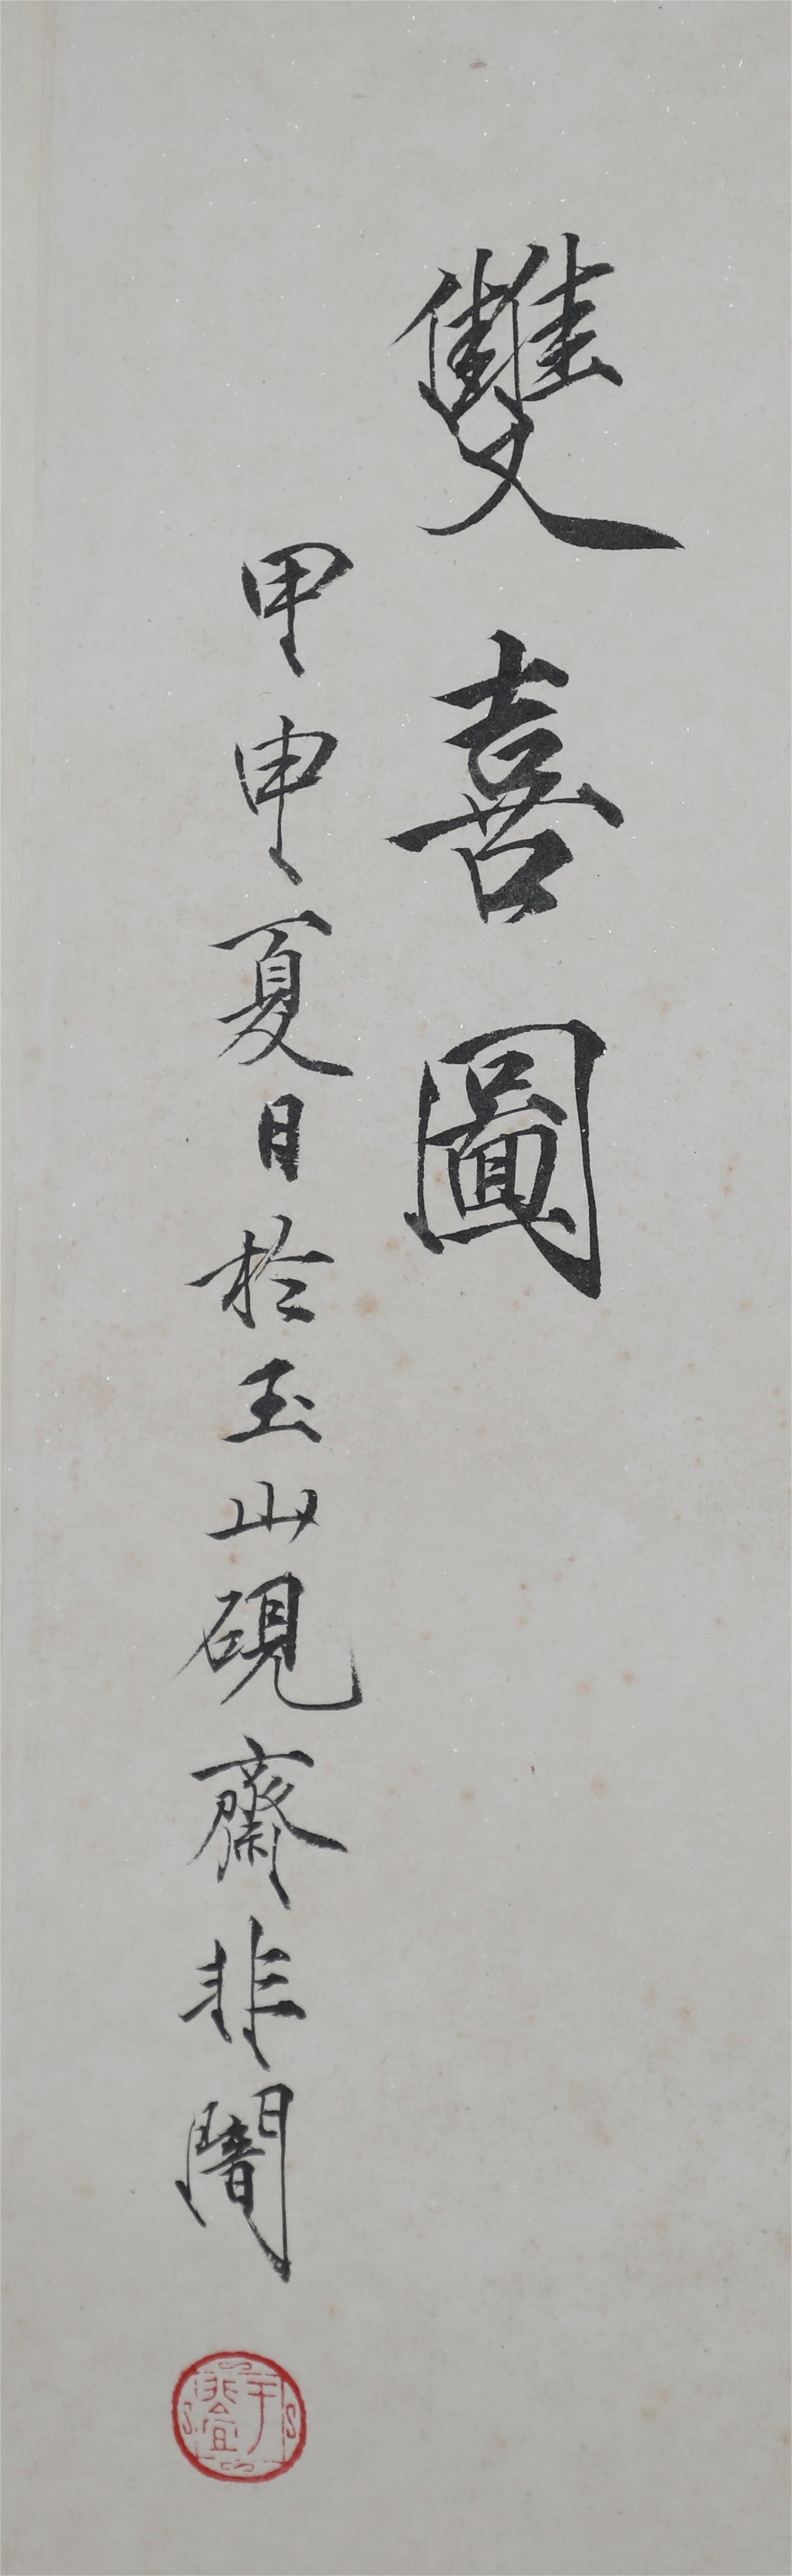 雙喜圖
甲申夏日於玉山硯齋非闇